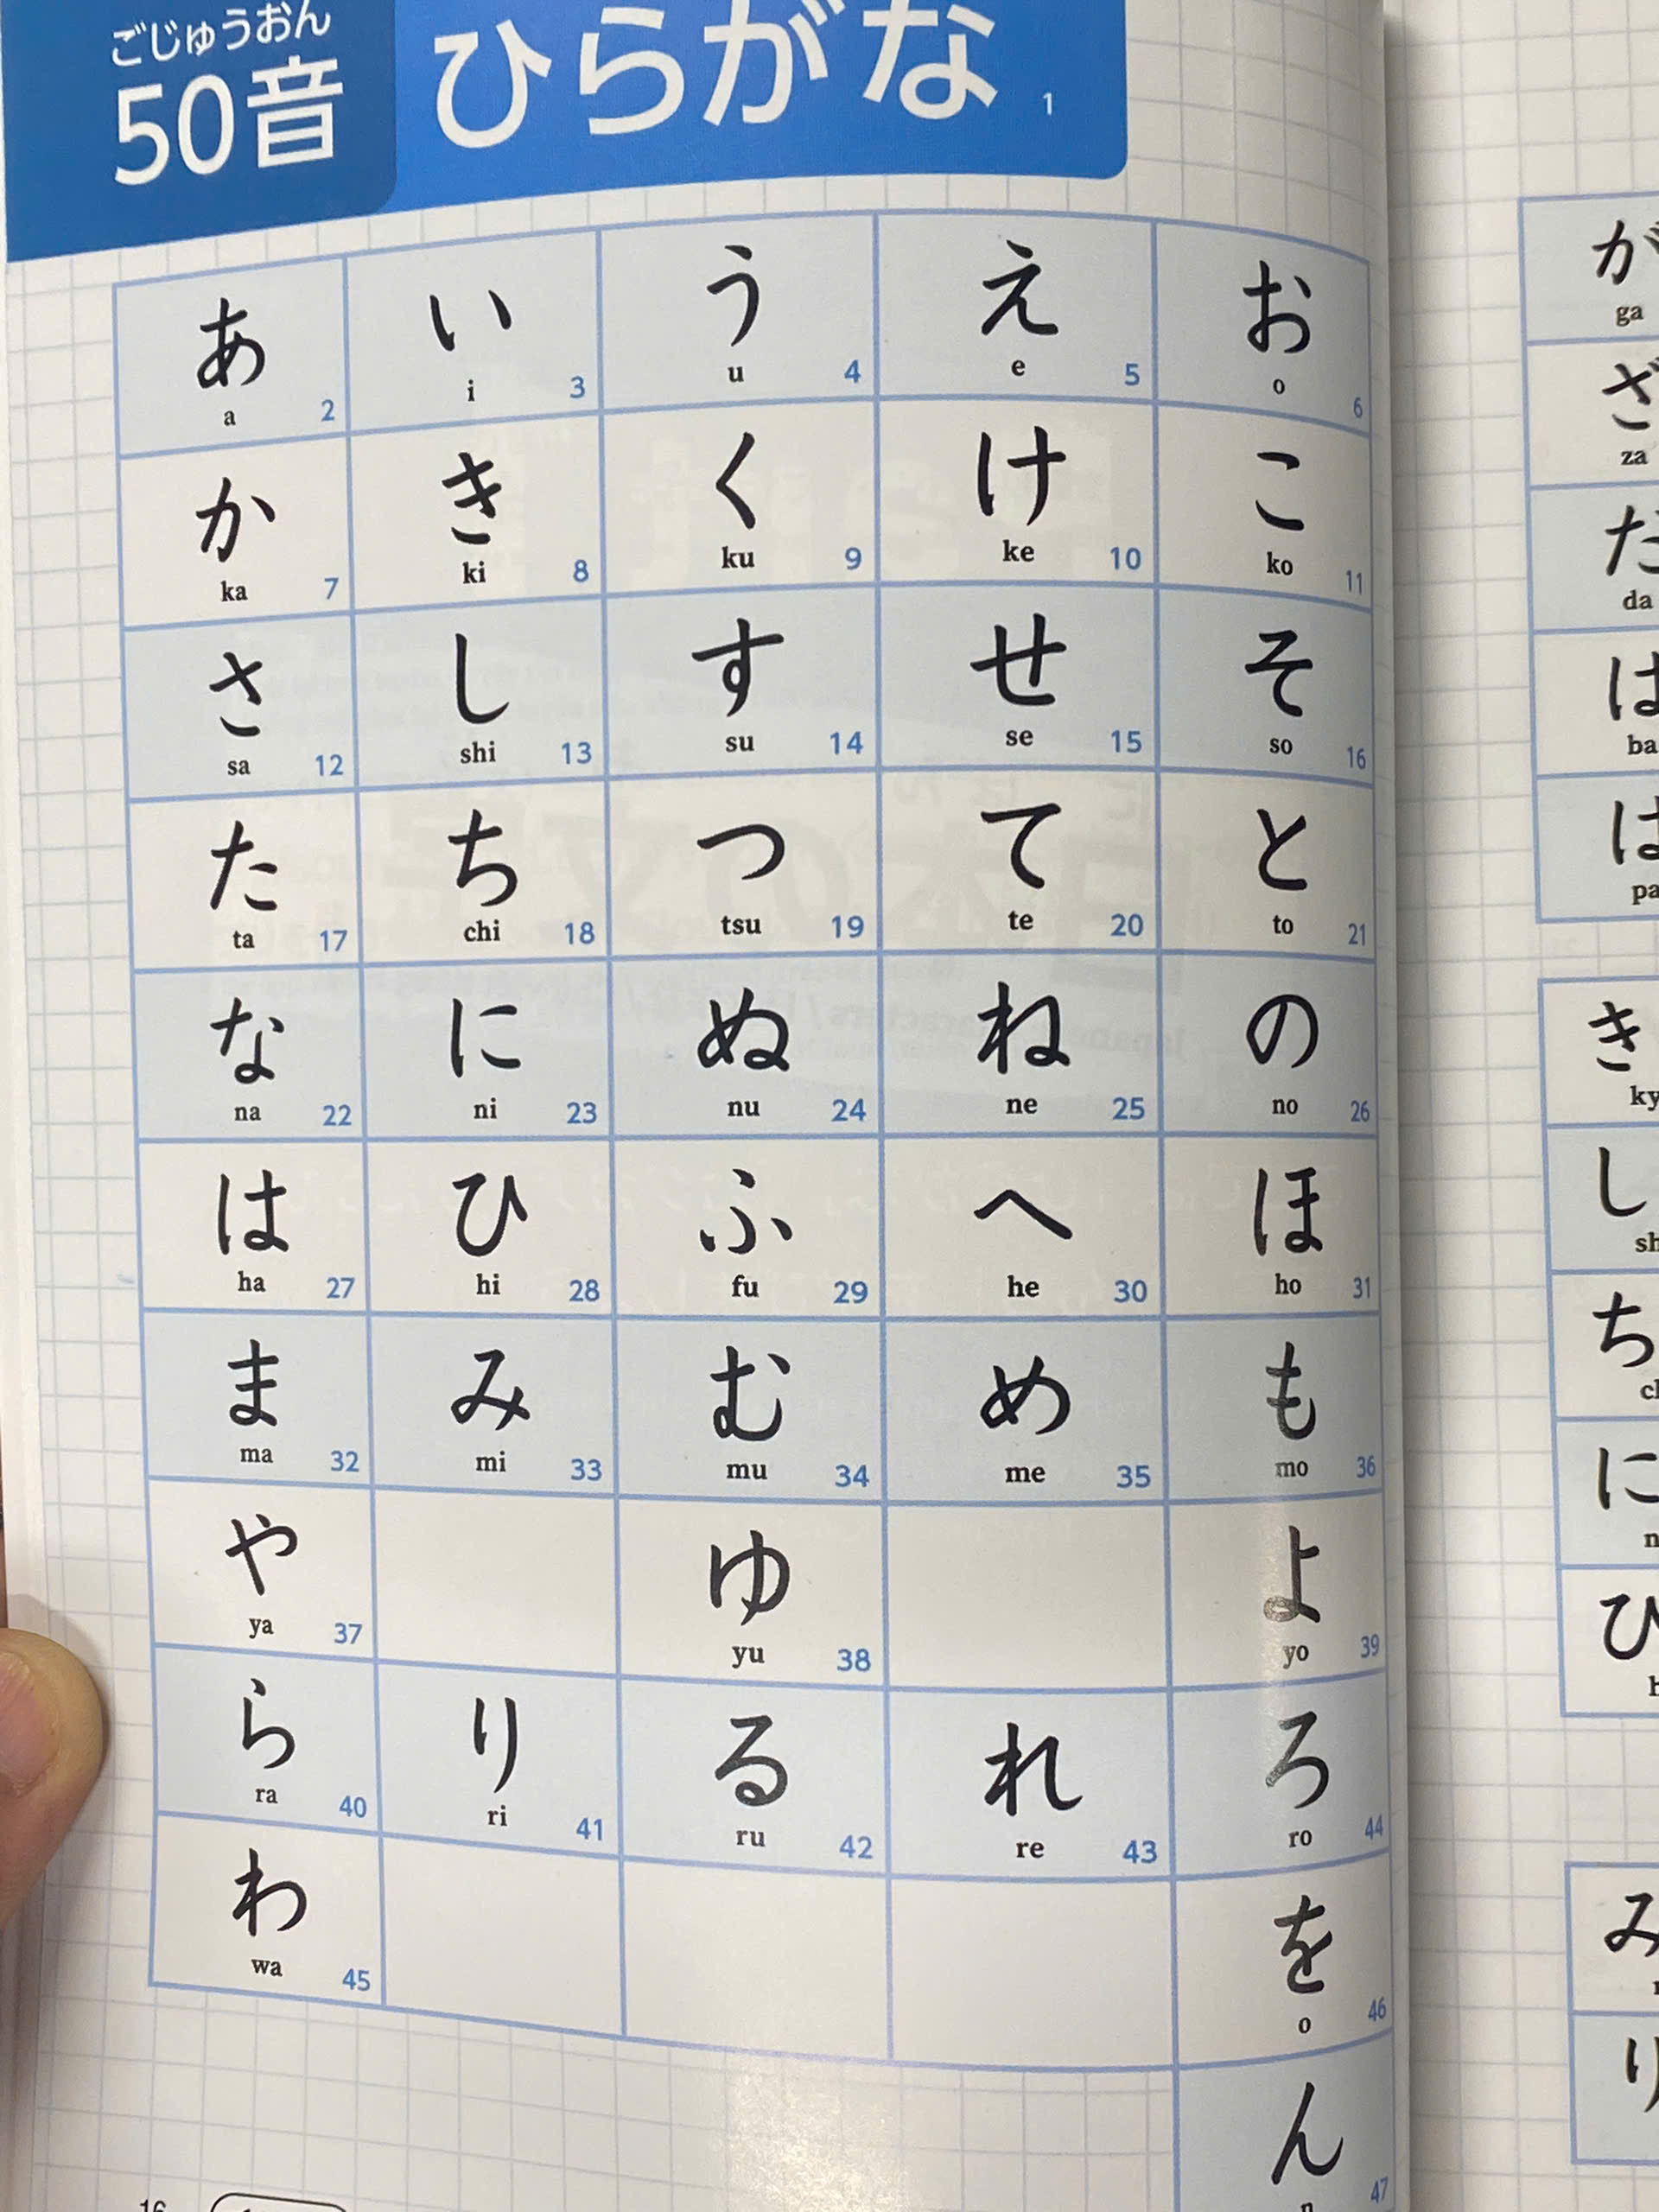 ごじゅうおん
50音 ひらがな 1
あ い う え お
a 2 i 3 u 4 e 5 o 6
か き く け こ
ka 7 ki 8 ku 9 ke 10 ko 11
さ し す せ そ
sa 12 shi 13 su 14 se 15 so 16
た ち つ て と
ta 17 chi 18 tsu 19 te 20 to 21
な に ぬ ね の
na 22 ni 23 nu 24 ne 25 no 26
は ひ ふ へ ほ
ha 27 hi 28 fu 29 he 30 ho 31
ま み む め も
ma 32 mi 33 mu 34 me 35 mo 36
や ゆ よ
ya 37 yu 38 yo 39
ら り る れ ろ
ra 40 ri 41 ru 42 re 43 ro 44
わ を
wa 45 o 46
ん
n 47
16
が
ga
ざ
za
だ
da
ば
ba
ぱ
pa
き
ky
し
sh
ち
に
ひ
み
り